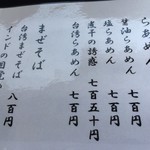 らあめん
醤油らあめん 七百円
塩らあめん 七百円
煮干の誘惑 七百五十円
台湾らあめん 七百円
まぜそば
台湾まぜそば
インドの目覚め 八百円